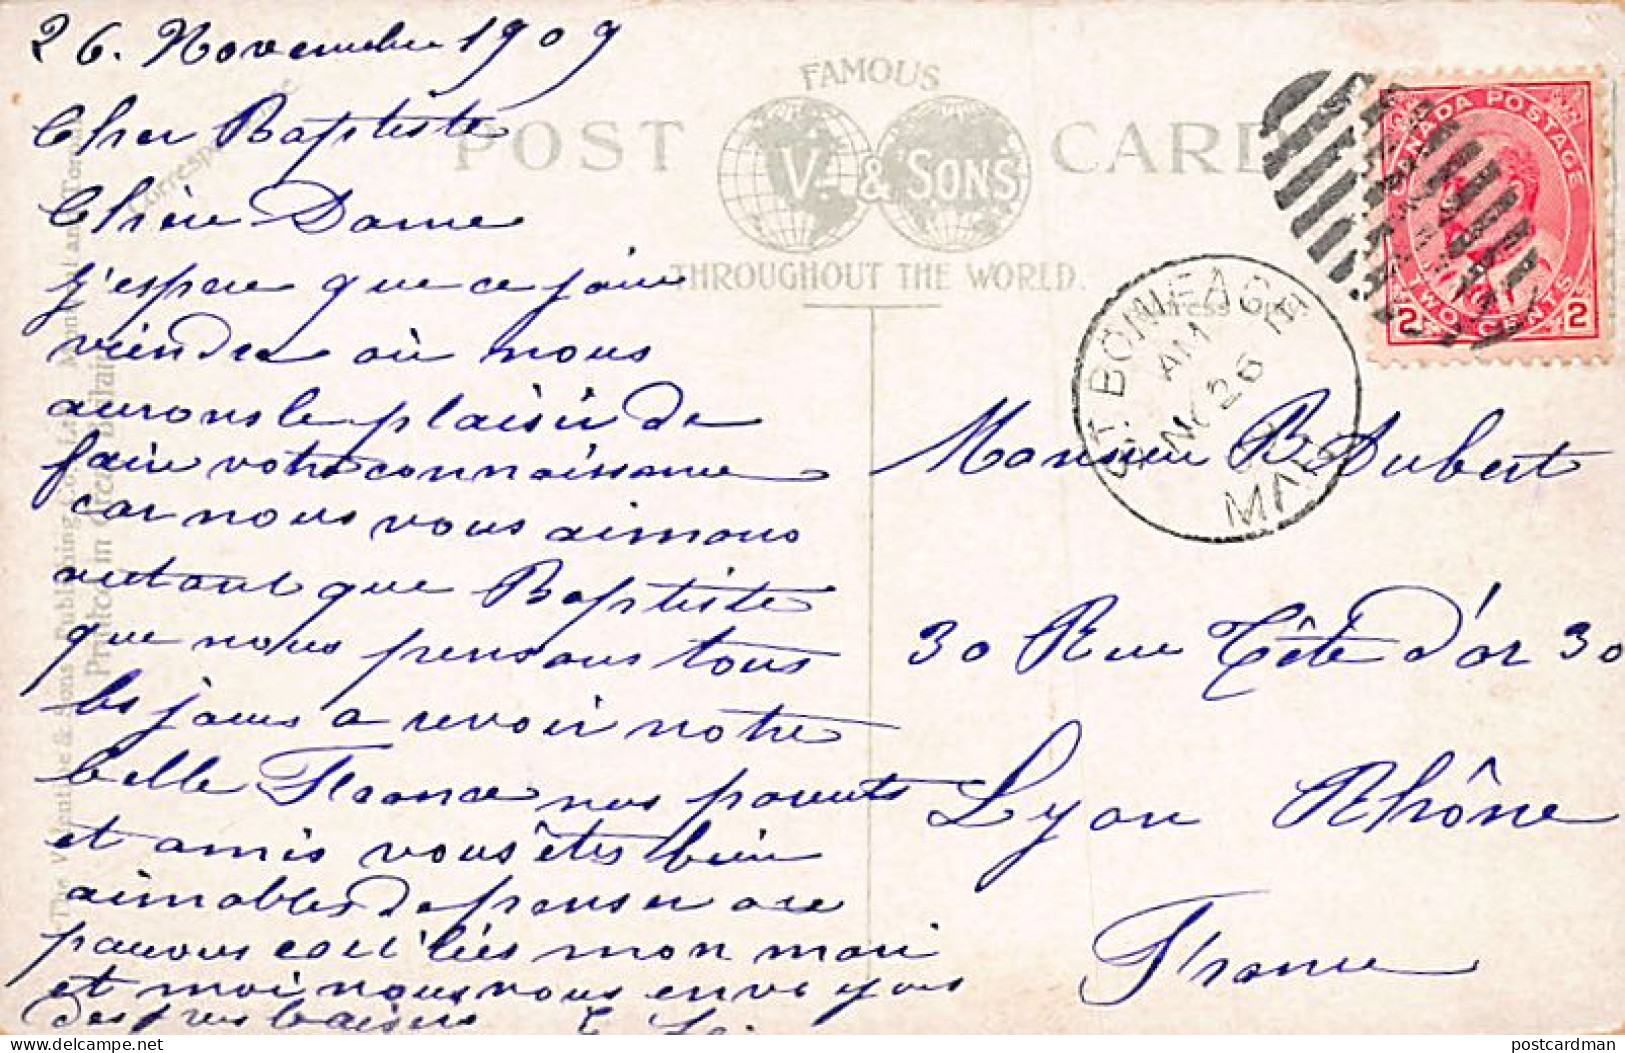 26. Novembre 1909
Cher Baptiste
Chère Dame
j'espere que ce jour
viendra où nous
aurons le plaisir de
faire votre connaissance
car nous vous aimons
autant que Baptiste
que nous pensons tous
les jours a revoir notre
belle France nos parents
et amis vous êtes bien
aimables de penser au
pauvres mon mari
et moi nous vous envoyons
des gros baisers
Correspondence
The Valentine & Sons Publishing Co. Ltd. Montreal and Toronto
Printed in Great Britain
POST CARD
FAMOUS
V. & SONS
THROUGHOUT THE WORLD.
CANADA POSTAGE
2 TWO CENTS 2
ST. BONIFACE
AM
NO 26
MAN
Monsieur B Dubert
30 Rue Tête d'or 30
Lyon Rhône
France
delcampe.net
postcardman